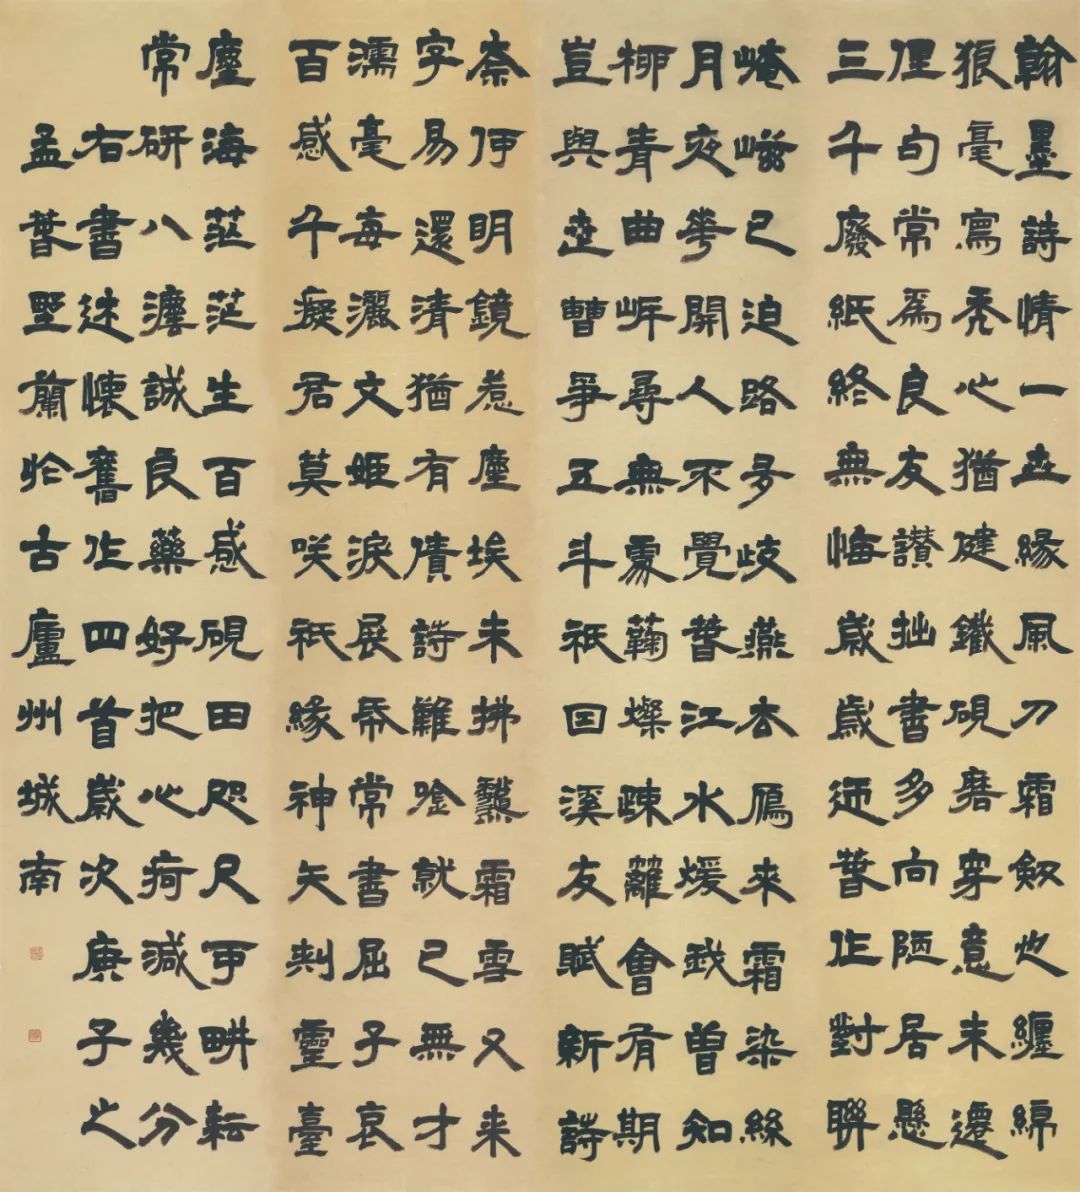 翰墨詩情一世緣風刀霜劍也纏綿
狼毫寫禿心猶健鐵硯磨穿意未遷
俚句常爲良友讚拙書多向陋居懸
三千廢紙終無悔歲歲迎春作對聯
崦嵫已迫路多歧燕去鴈來霜染絲
月夜花開人不覺春江水煖我曾知
柳青曲岸尋無處菊燦疎籬會有期
豈與世曹爭五斗祇因溪友賦新詩
奈何明鏡惹塵埃未拂霜雪又来
字易還清猶有債詩難唫就已無才
濡毫每灑文姬淚展卷常書屈子哀
百感千癡君莫咲祇緣神矢刺靈臺
塵海茫茫生百感硯田咫尺可畊耘
常研八法誠良藥好把心疴減幾分
右書述懷舊作四首歲次庚子之
孟春於古廬州城南